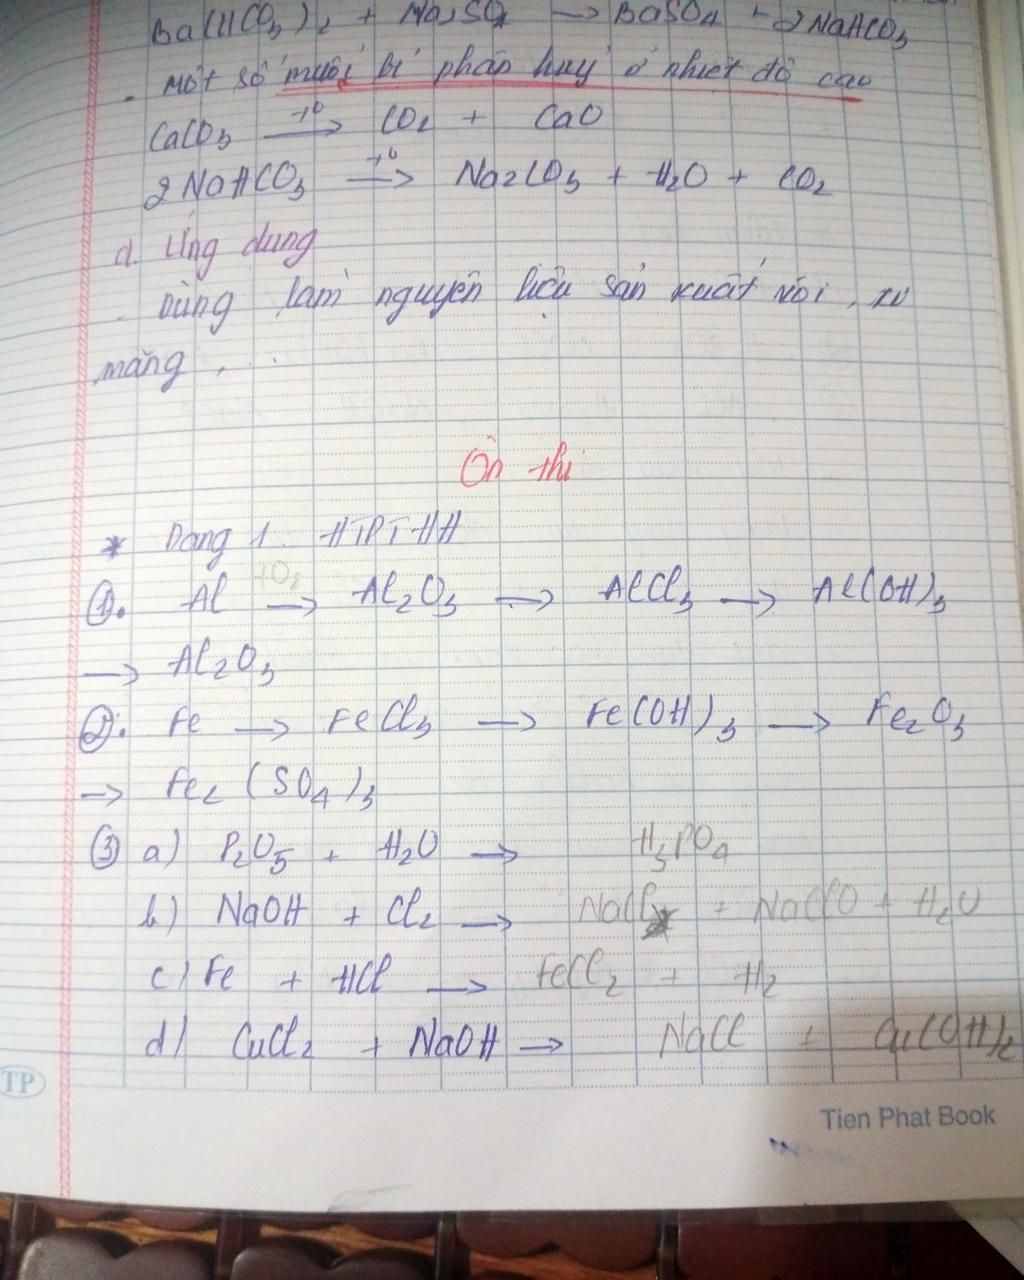 Ba(HCO₃)₂ + Na₂SO₄ → BaSO₄ + 2NaHCO₃
- Một số muối bị phân huỷ ở nhiệt độ cao
CaCO₃ –t⁰→ CO₂ + CaO
2NaHCO₃ –t⁰→ Na₂CO₃ + H₂O + CO₂
d. Ứng dụng
- Dùng làm nguyên liệu sản xuất vôi, xi
măng, ...
Ôn thi
* Dạng 1: HTPTHH
①. Al –+O₂→ Al₂O₃ → AlCl₃ → Al(OH)₃
→ Al₂O₃
②. Fe → FeCl₃ → Fe(OH)₃ → Fe₂O₃
→ Fe₂(SO₄)₃
③ a) P₂O₅ + H₂O → H₃PO₄
b) NaOH + Cl₂ → NaCl + NaClO + H₂O
c) Fe + HCl → FeCl₂ + H₂
d) CuCl₂ + NaOH → NaCl + Cu(OH)₂
TP
Tien Phat Book